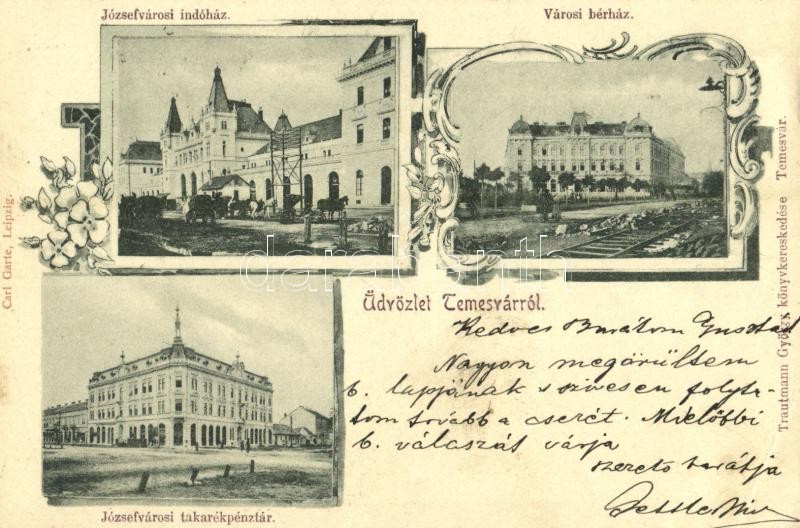 Józsefvárosi indóház.
Városi bérház.
Carl Garte, Leipzig.
Trautmann György könyvkereskedése Temesvár.
darabanth
Üdvözlet Temesvárról.
Kedves Barátom Gusztáv
Nagyon megörültem
b. lapjának s szivesen folyta-
tom tovább a cserét. Mielőbbi
b. válaszát várja
szerető barátja
Józsefvárosi takarékpénztár.